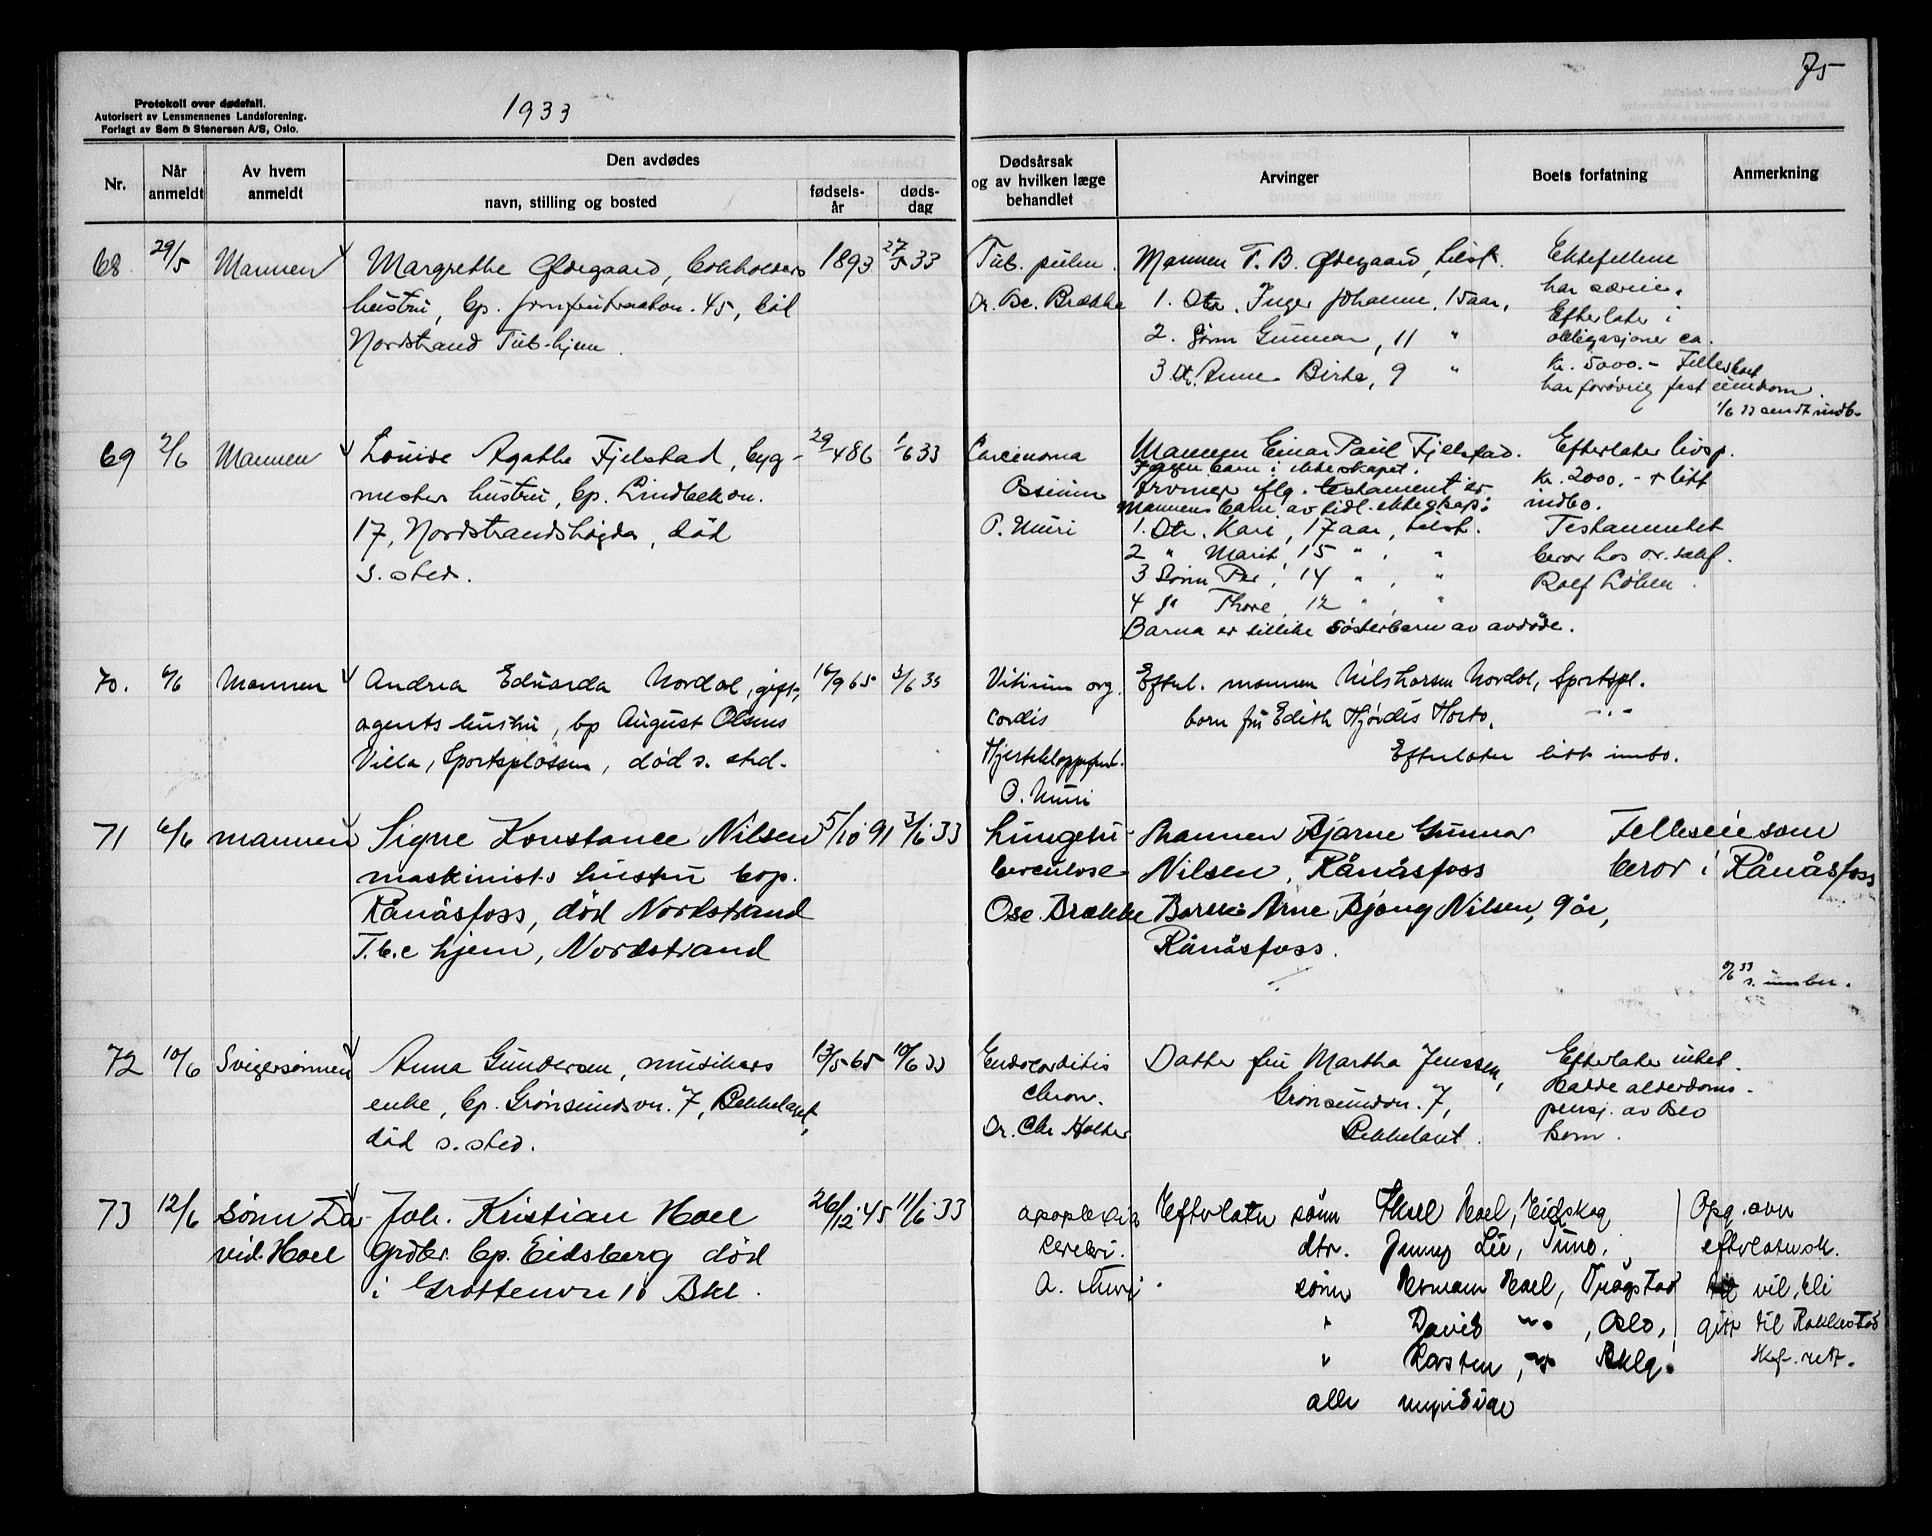 75
Protokoll over dødsfall.
Autorisert av Lensmennenes Landsforening.
Forlagt av Sem & Stenersen A/S, Oslo.
1933
Nr.
Når anmeldt
Av hvem anmeldt
Den avdødes
navn, stilling og bosted
fødsels-år
døds-dag
Dødsårsak og av hvilken læge behandlet
Arvinger
Boets forfatning
Anmerkning
68 29/5 Mannen Margrethe Ødegaard, bokholders 1893 27/5 33
hustru, bp. 45, död
Nordstrand Tub.hjem.
Tub. pulm.
Dr. Brække
Mannen T. B. Ødegaard, tilst.
1. Dtr. Inger Johanne, 15 aar,
2. Sönn Gunnar, 11 "
3 Dtr. Anne Birte, 9 "
Ektefellene
har særeie.
Efterlater i
obligasjoner ca.
Kr. 5000.- Fellesboet
har forøvrig fast eiendom.
1/6 33 sendt indb.
69 2/6 Mannen Louise Agathe Fjelstad, byg- 29/4 86 1/6 33
mesters hustru, bp. Lindbekvn.
17, Nordstrandshögda, död
s. sted.
Carcinoma
Ossium
P. Muri
Mannen Einar Paul Fjelstad.
Ingen barn i ekteskapet.
Arvinger iflg. testament er
Mannens barn av tidl. ekteskap:
1. Dtr. Kari, 17 aar, tilst.
2 " Marit, 15 " , "
3 Sönn Per, 14 " , "
4 Thore, 12 " , "
Barna er tillike sösterbarn av avdöde.
Efterlater livsp.
Kr. 2000.- + litt
indbo.
Testamentet
beror hos or. sakf.
Rolf
70. 6/6 Mannen Andrea Eduarda Nordal, 16/9 65 5/6 33
agents hustru, bp August Olsens
Villa, Sportsplassen, död s. sted.
Vitium org.
cordis
Hjerteklappfeil.
Efterl. mannen Nils Larsen Nordal, Sportspl.
barn fru Edith Hjördis Horts, -"-
Efterlater litt innbo.
71 6/6 mannen Signe Konstance Nilsen 5/10 91 3/6 33
maskinists hustru bop.
Rånåsfoss, död Nordstrand
T.b.c hjem, Nordstrand
Lungetu-
berculose
Ose. Brække
Mannen Bjarne Gunnar
Nilsen, Rånåsfoss
Barn: Arne Bjöng Nilsen, 9 år,
Rånåsfoss.
Felleseie som
beror i Rånåsfoss
72 10/6 Svigersönnen Anna Gundersen, musikers 13/5 65 10/6 33
enke, bp. Grönsundsvn. 7, Bekkelaget,
död s. sted.
Endocarditis
chron.
Dr. Chr Holter
Datter fru Martha Jenssen,
Grönsundsvn. 7,
Bekkelaget.
Efterlater intet.
Hadde alderdoms-
pensj. av Oslo
kom.
73 12/6 Sönn Da-
vid Hoel
Joh. Kristian Hoel 26/12 45 11/6 33
grdbr. bp. Eidsberg död
i Grottenvn 10 Bkl.
apoplexia
cerebri.
Efterlater sönn Hoel, Eidskog
dtr. Jenny Lie,
sönn Herman Hoel, Trögstad
" David " , Oslo,
" Karsten, " Bklg.
alle myndige
Opg. over
efterlatensk.
vil bli
gitt til Rakkestad
skf. rett.